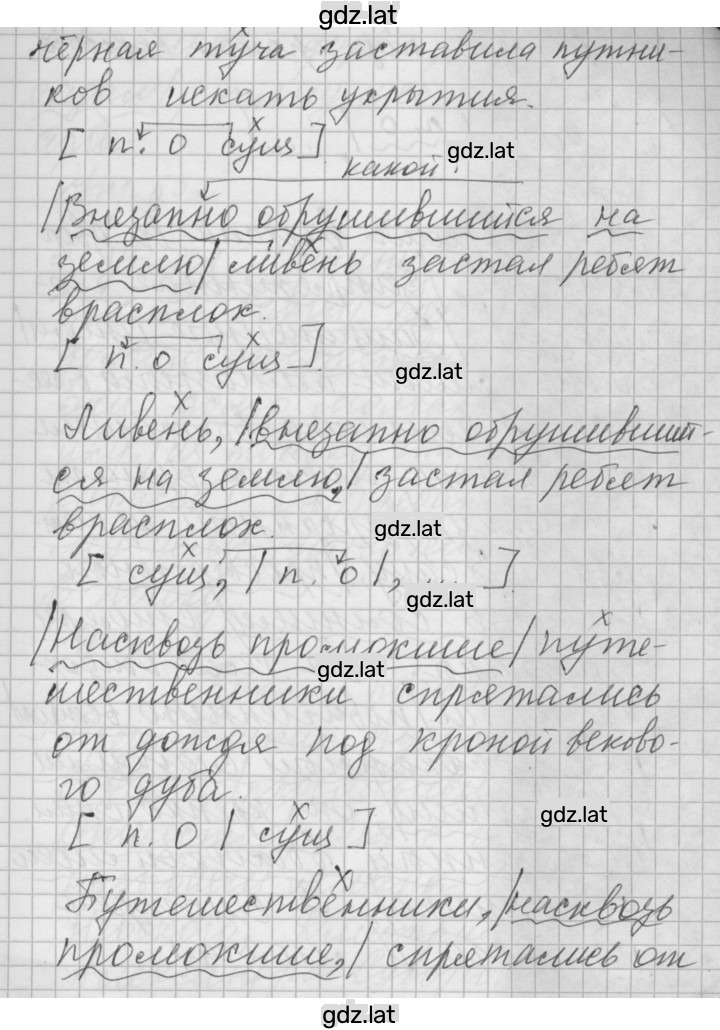 gdz.lat
чёрная туча заставила путни-
ков искать укрытия.
[ п. о сущ ]
gdz.lat
какой?
|Внезапно обрушившийся на
землю| ливень застал ребят
врасплох.
[ п. о сущ ].
gdz.lat
Ливень, |внезапно обрушивший-
ся на землю,| застал ребят
врасплох.
gdz.lat
[ сущ, | п. о |, .... ]
gdz.lat
|Насквозь промокшие| путе-
gdz.lat
шественники спрятались
от дождя под кроной веково-
го дуба.
gdz.lat
[ п. о | сущ ]
Путешественники, |насквозь
промокшие,| спрятались от
gdz.lat